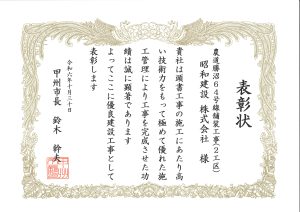 表彰状
農道勝沼64号線舗装工事(2工区)
昭和建設 株式会社 様
貴社は頭書工事の施工にあたり高
い技術力をもって極めて優れた施
工管理により工事を完成させた功
績は誠に顕著であります
よってここに優良建設工事として
表彰します
令和六年十月三十日
甲州市長 鈴木 幹夫